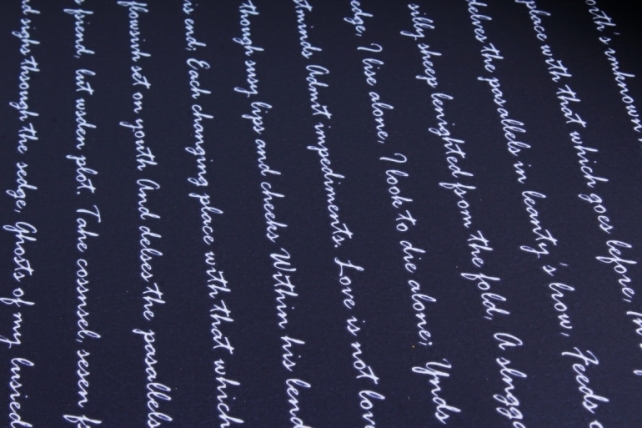 unknown
place with that which goes before,
the parallels in beauty's brow, Feeds
silly sheep benighted from the fold, A
edge, I lise alone, I look to die alone;
tminds Admit impediments. Love is not lov
though rosy lips and cheeks Within his bend
is end, Each changing place with that which
flourish set on youth And delves the parallels
friend, but plot, Take
sigh through the sedge, Ghosts of my busied